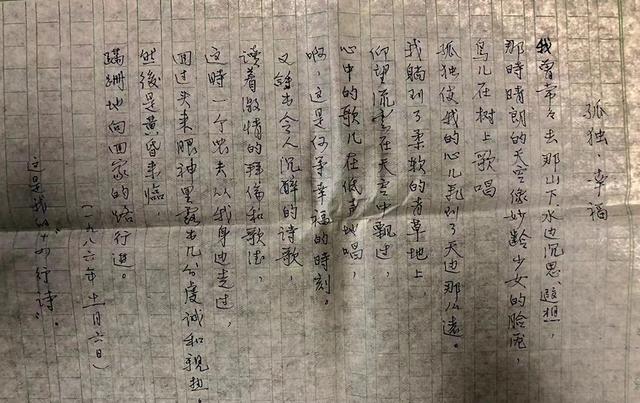 孤独·幸福
我曾常々去那山下、水边沉思、遐想,
那時晴朗的天空像妙齡少女的臉庞,
鸟儿在树上歌唱
孤独使我的心儿飛到了天边那么遠。
我躺到了柔软的青草地上,
仰望流云在天空中飘过,
心中的歌儿在低声地唱,
啊,这是何等幸福的時刻。
又鋒出令人沉醉的诗歌
读着激情的拜倫和歌德,
这時一个农夫从我身边走过,
回过头来眼神里露出几分虔诚和親热。
然後是黄昏来臨,
蹒跚地向回家的路行進。
(一九八六年十一月六日)
“这是我的十四行诗”